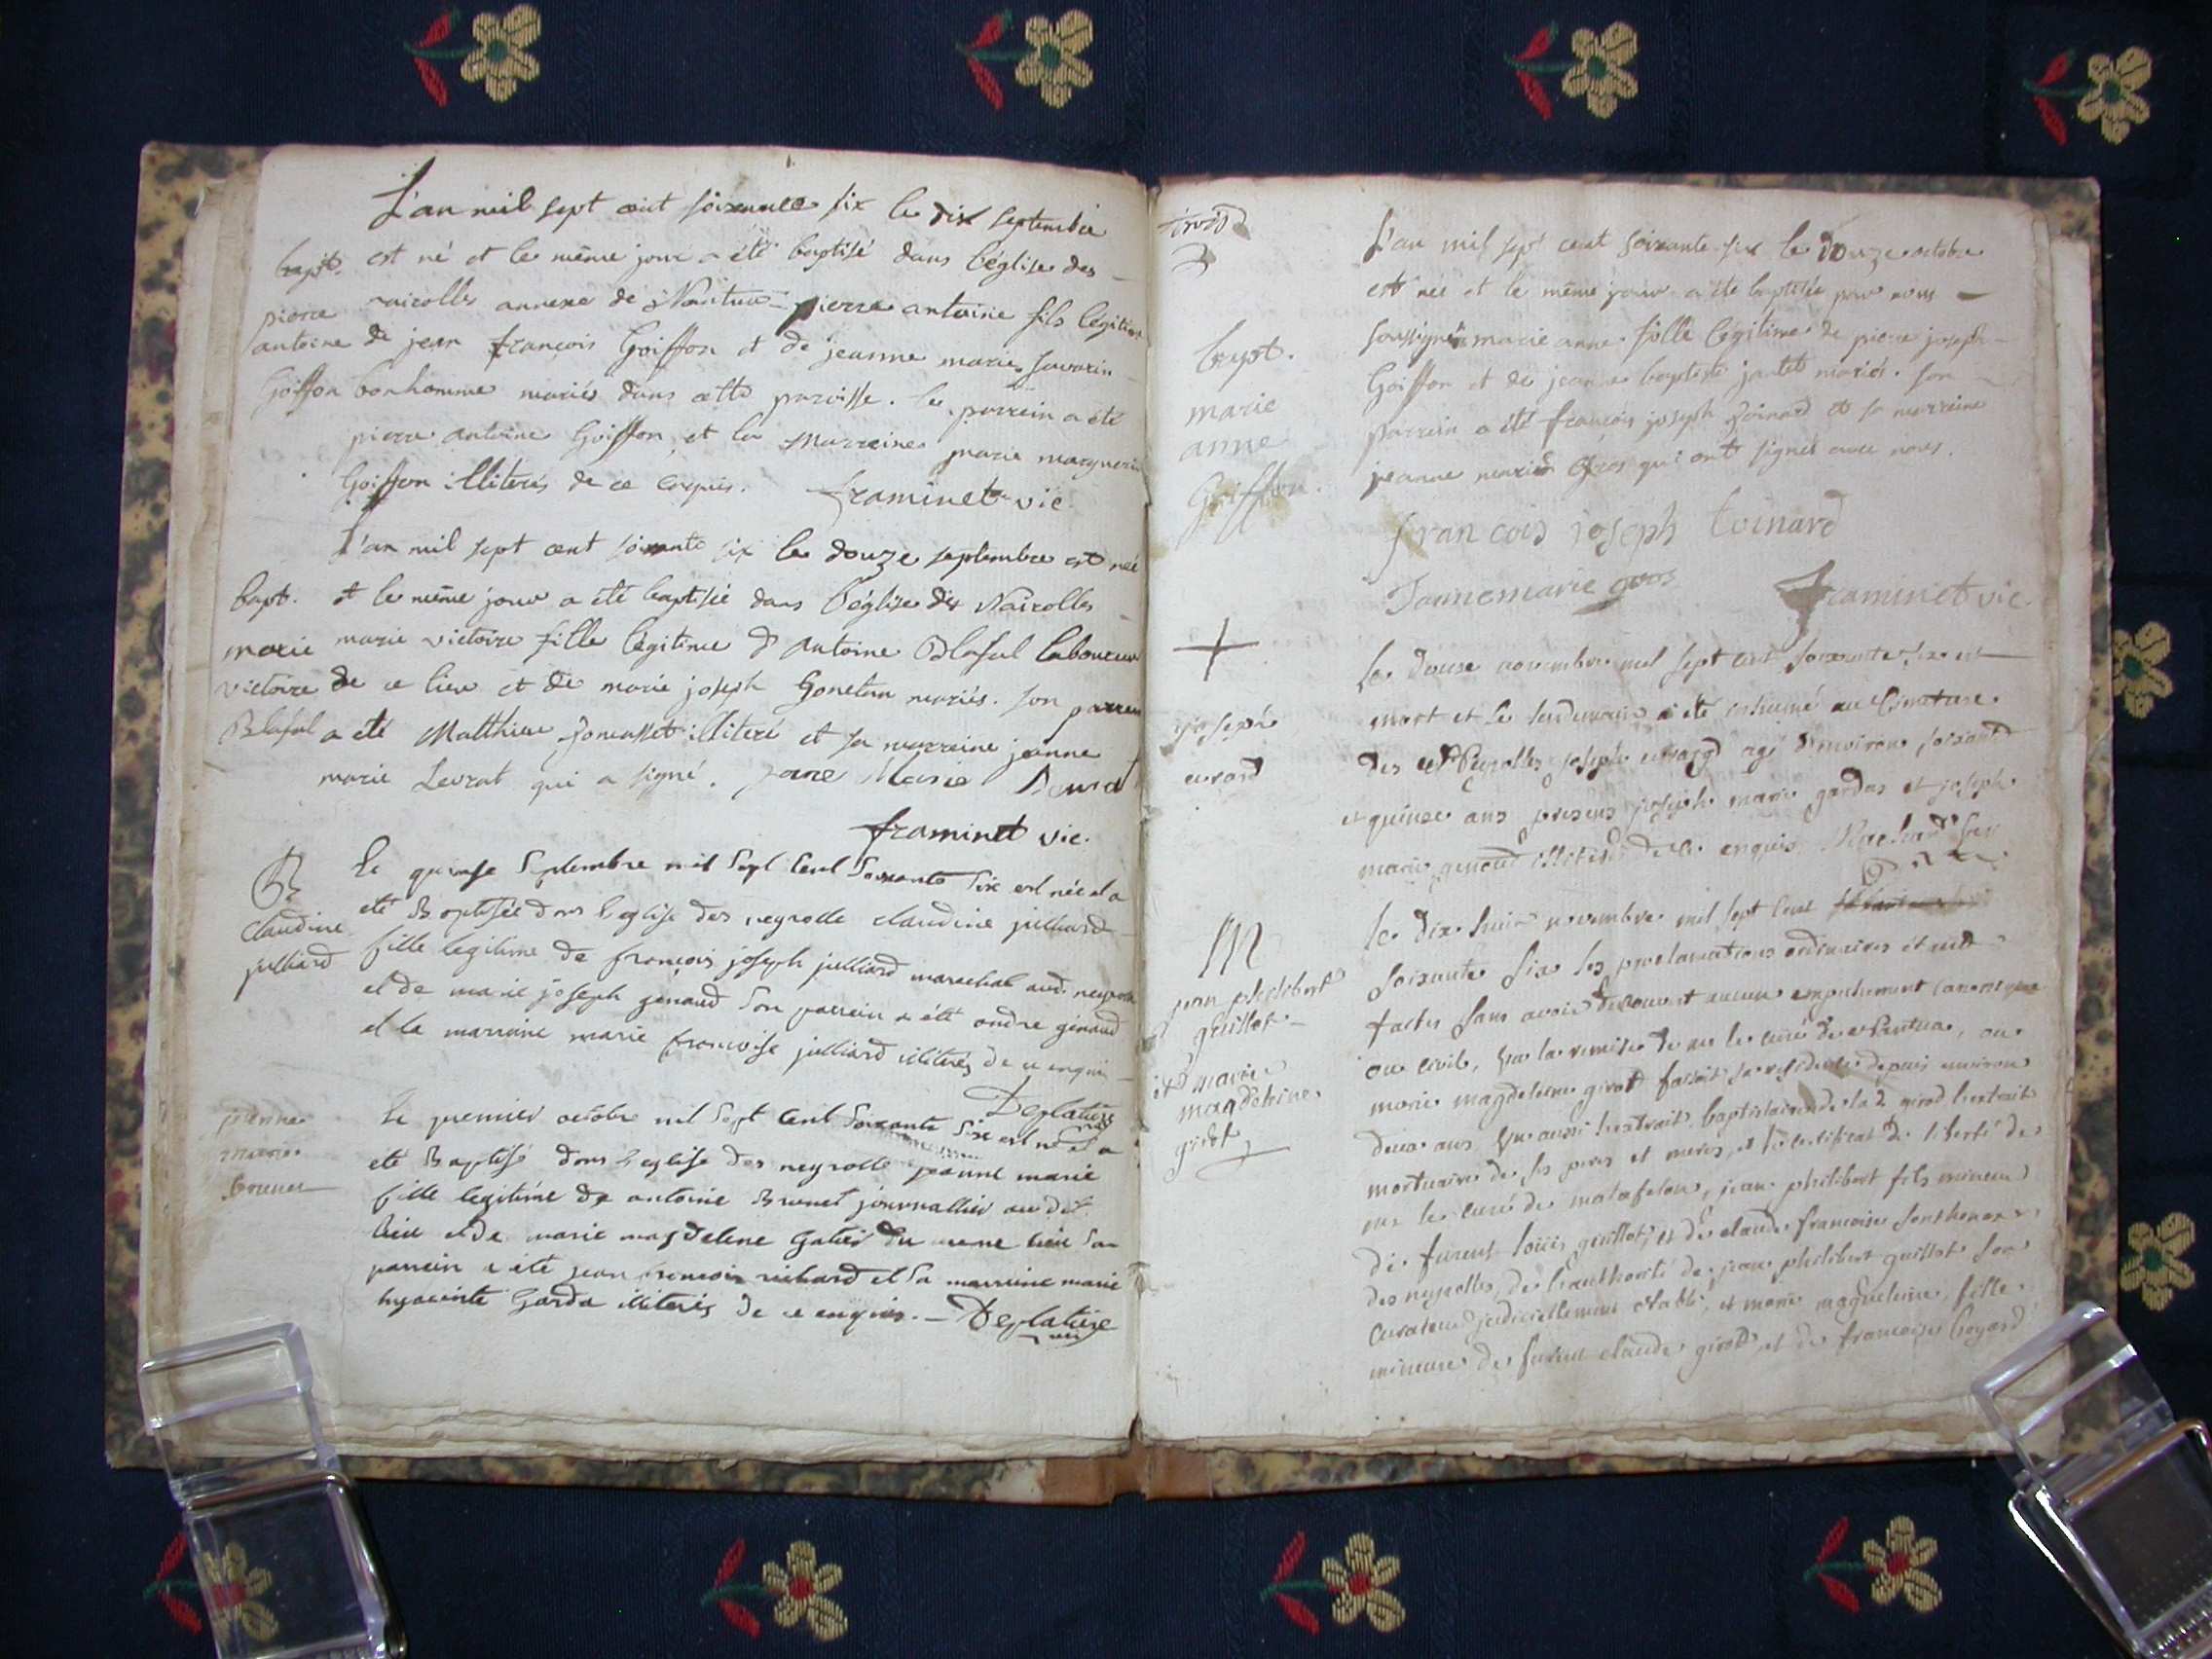 L'an mil sept cent soixante six le dix septembre
bapt. est né et le même jour a été baptisé dans l'église des
pierre neirolles annexe de Nantua pierre antoine fils légitime
antoine de jean françois Goiffon et de jeanne marie savarin
Goiffon bonhomme mariés dans cette paroisse. le parrein a été
pierre antoine Goiffon et la Marreine marie marguerite
Goiffon illiterés de ce enquis. framinet vic.
L'an mil sept cent soixante six le douze septembre est née
bapt. et le même jour a été baptisée dans l'église des Nairolles
marie marie victoire fille légitime d'antoine Blaful laboureur
victoire de ce lieu et de marie joseph Gonetan mariés. son parrein
Blaful a été Matthieu illiteré et sa marreine jeanne
marie Levrat qui a signé. Marie
framinet vic.
B Le quinse Septembre mil Sept Cent Soixante Six est née et a
été Baptisée dans l'eglise des neyrolle claudine julliard
claudine fille legitime de françois joseph julliard marechal aud. neyrolle
julliard et de marie joseph genaud Son parrein a été andre genaud
et la marraine marie françoise julliard illiterés de ce enquis
Deplatiere
Le premier octobre mil Sept Cent Soixante Six est née et a
jeanne été Baptisé dans l'eglise des neyrolle jeanne marie
marie fille legitime de antoine Brunet journallier au dit
brunet lieu et de marie magdelene Gatier du meme lieu Son
parrein a été jean francois richard et Sa marreine marie
hyacinte Garda illiterés de ce enquis. - Deplatiere
trois
3
L'an mil sept cent soixante six le douze octobre
est née et le même jour a été baptisée par nous
bapt. soussigné marie anne fille légitime de pierre joseph
marie Goiffon et de jeanne baptiste jantet mariés. son
anne parrein a été françois joseph Toinard et sa marreine
Goiffon. jeanne marie Gros qui ont signés avec nous.
francois joseph toinard
Jannemarie gros framinet vic.
+
Le douse novembre mil sept cent soixante six est
mort et le lendemain a été inhumé au Cimetiere
joseph des Neyrolles joseph evrard agé d'environ soixante
evrard et quinse ans presens joseph marie gardas et joseph
marie genoud illiteres de ce enquis
M
le dix huit novembre mil sept cent
soixante six les proclamations ordinaires étant
jean philibert faites sans avoir decouvert aucun empechement canonique
guillot ou civil, vu la remise de mr le curé de Nantua, ou
et marie marie magdeleine girod faisoit sa residence depuis environ
magdeleine deux ans, vu aussi l'extrait baptistaire de la d. girod l'extrait
girod mortuaire de ses peres et meres, et le certificat de liberté de
mr le curé de matafelon, jean philibert fils mineur
de furent loüis guillot, et de claude francoise sonthonax
des neyrolles, de l'authorité de jean philibert guillot son
curateur judiciellement établi, et marie magdeleine, fille
mineure de furent claude girod, et de francoise bogard